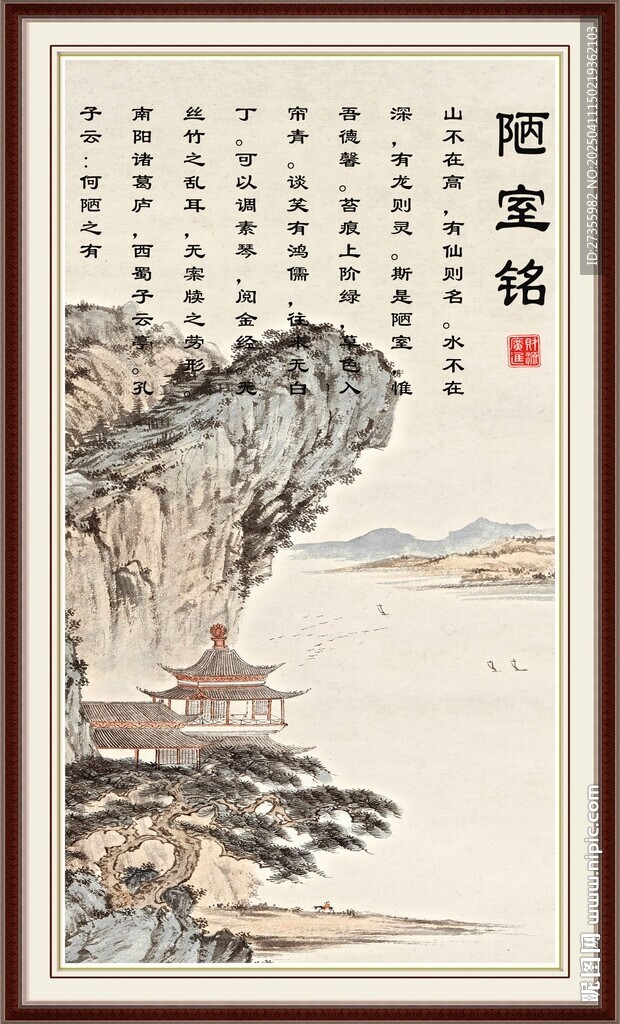 陋室铭
山不在高，有仙则名。水不在
深，有龙则灵。斯是陋室，惟
吾德馨。苔痕上阶绿，草色入
帘青。谈笑有鸿儒，往来无白
丁。可以调素琴，阅金经。无
丝竹之乱耳，无案牍之劳形。
南阳诸葛庐，西蜀子云亭。孔
子云：何陋之有
財源
廣進
ID:27355982 NO:20250411150219362103
昵图网 www.nipic.com